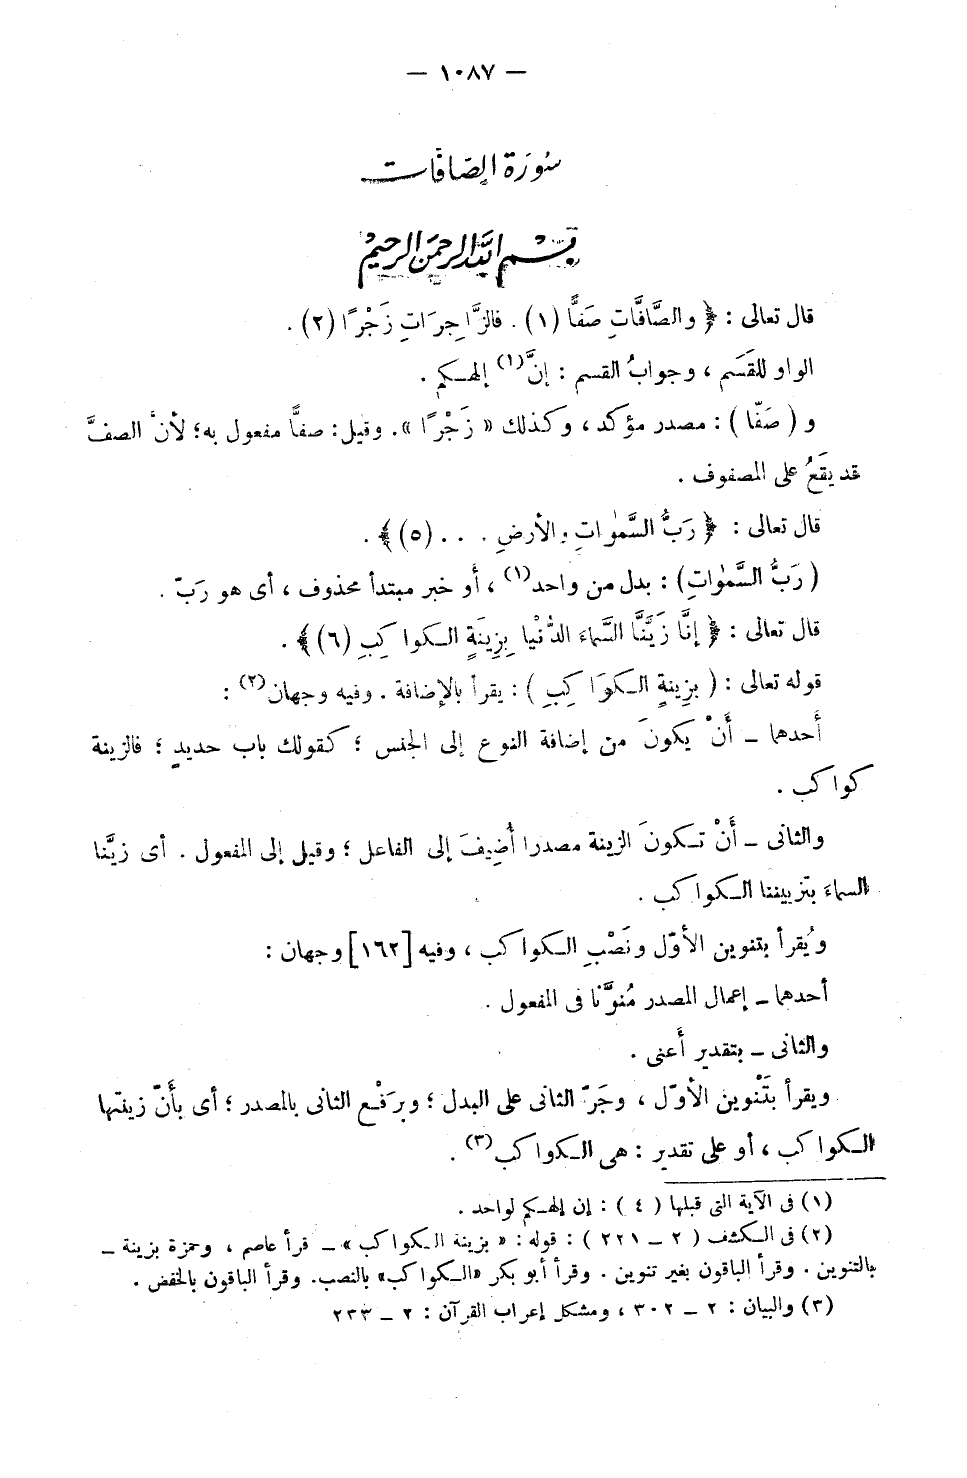 — ١٠٨٧ —
سُورَة الصَّافَّات
بِسْمِ اللَّهِ الرَّحْمَنِ الرَّحِيمِ
قال تعالى : ﴿ والصَّافَّاتِ صَفًّا (١) . فالزَّاجِرَاتِ زَجْرًا (٢) .
الواو للقَسَم ، وجوابُ القسم : إنَّ(١) إلهكم .
و ( صَفًّا ) : مصدر مؤكد ، وكذلك « زَجْرًا » . وقيل : صفاً مفعول به ؛ لأن الصفَّ
قد يقَعُ على المصفوف .
قال تعالى : ﴿ رَبُّ السَّمٰوَاتِ والأرضِ . . . (٥) ﴾ .
( رَبُّ السَّمٰوَاتِ ) : بدل من واحد(١) ، أو خبر مبتدأ محذوف ، أى هو رَبّ .
قال تعالى : ﴿ إنَّا زَيَّنَّا السَّمَاءَ الدُّنْيا بِزِينَةٍ الكواكِبِ (٦) ﴾ .
قوله تعالى : ( بزِينةِ الكَوَاكِبِ ) : يقرأ بالإضافة . وفيه وجهان(٢) :
أحدهما – أَنْ يكونَ من إضافة النوع إلى الجنس ؛ كقولك باب حديدٍ ؛ فالزينة
كواكب .
والثانى – أَنْ تكونَ الزينة مصدرا أُضِيفَ إلى الفاعل ؛ وقيل إلى المفعول . أى زيَّنا
السماءَ بتزييننا الكواكب .
ويُقرأ بتنوين الأوّل ونَصْبِ الكواكب ، وفيه [١٦٢] وجهان :
أحدهما – إعمال المصدر مُنوَّنا فى المفعول .
والثانى – بتقدير أَعنى .
ويقرأ بتَنْوين الأوّل ، وجَرّ الثانى على البدل ؛ وبرَفْع الثانى بالمصدر ؛ أى بأَنّ زينتها
الكواكب ، أو على تقدير : هى الكواكب(٣) .
(١) فى الآية التى قبلها ( ٤ ) : إن إلهكم لواحد .
(٢) فى الكشف ( ٢ – ٢٢١ ) : قوله : « بزينة الكواكب » – قرأ عاصم ، وحمزة بزينة –
بالتنوين . وقرأ الباقون بغير تنوين . وقرأ أبو بكر «الكواكب» بالنصب. وقرأ الباقون بالخفض .
(٣) والبيان : ٢ – ٣٠٢ ، ومشكل إعراب القرآن : ٢ – ٢٣٣